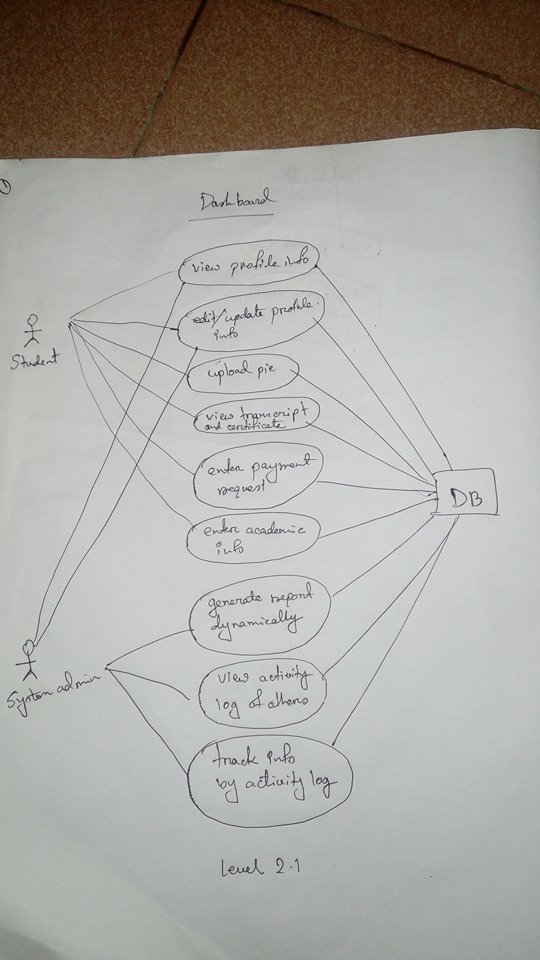 Dashboard
view profile info
edit/update profile
info
Student
upload pic
view transcript
and certificate
enter payment
request
DB
enter academic
info
generate report
dynamically
System admin
view activity
log of others
track info
by activity log
Level 2.1